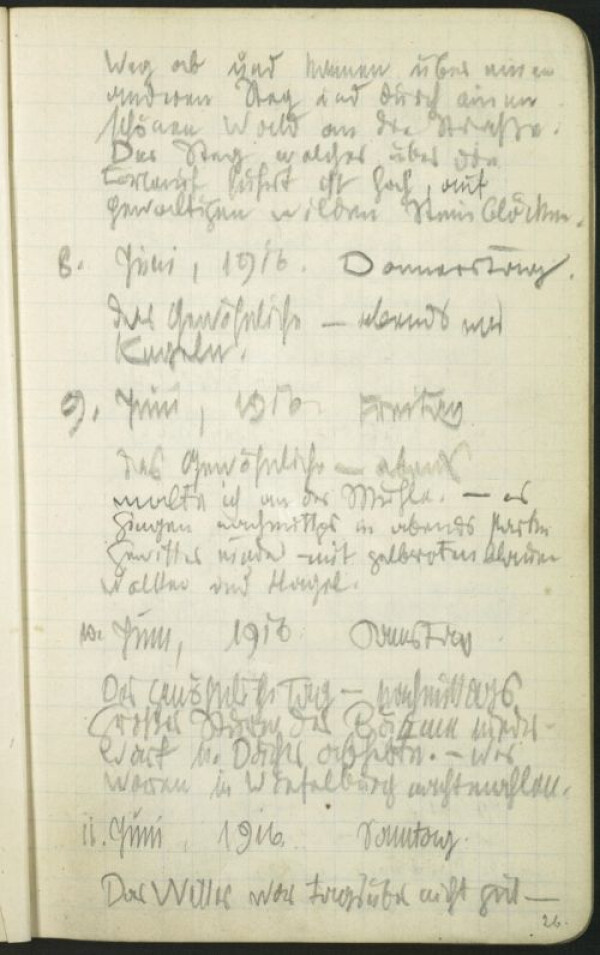 Weg ab und kamen über einen
anderen Steg und durch einen
schönen Wald an die Strasse.
Der Steg welcher über die
Erlauf führt ist hoch, auf
gewaltigen wilden Steinblöcken.
8. Juni, 1916. Donnerstag.
das Gewöhnliche – abends war
Kegeln.
9. Juni, 1916. Freitag
das Gewöhnliche – abends
malte ich an der Mühle. – es
gingen nachmittgs u abends starke
Gewitter nieder – mit gelbroten blauen
Wolken und Hagel.
10. Juni, 1916 Samstag
Der gewöhnliche Tag – nachmittags
Großer Sturm der Bäume nieder-
warf u. Dächer abhebte. – wir
waren in Wieselburg nachtmahlen.
11. Juni, 1916. Sonntag.
Das Wetter war tagsüber nicht gut –
26.